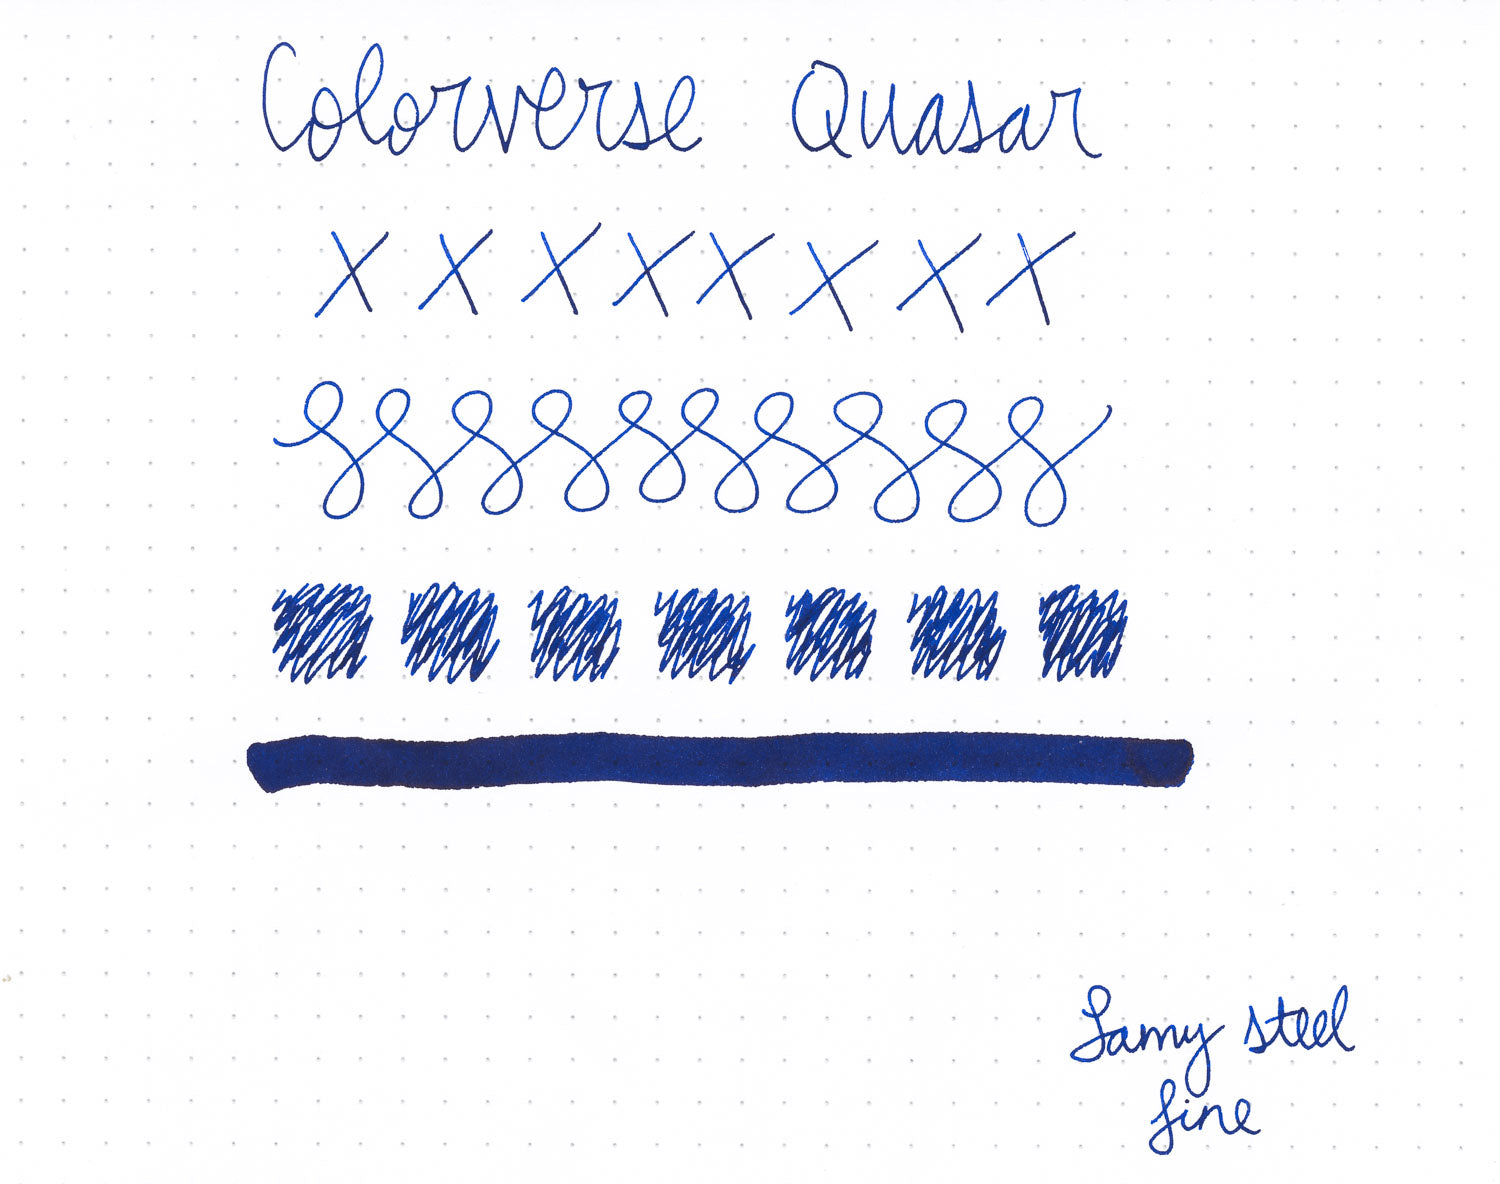 Colorverse Quasar
x x x x x x x x
Lamy steel
fine